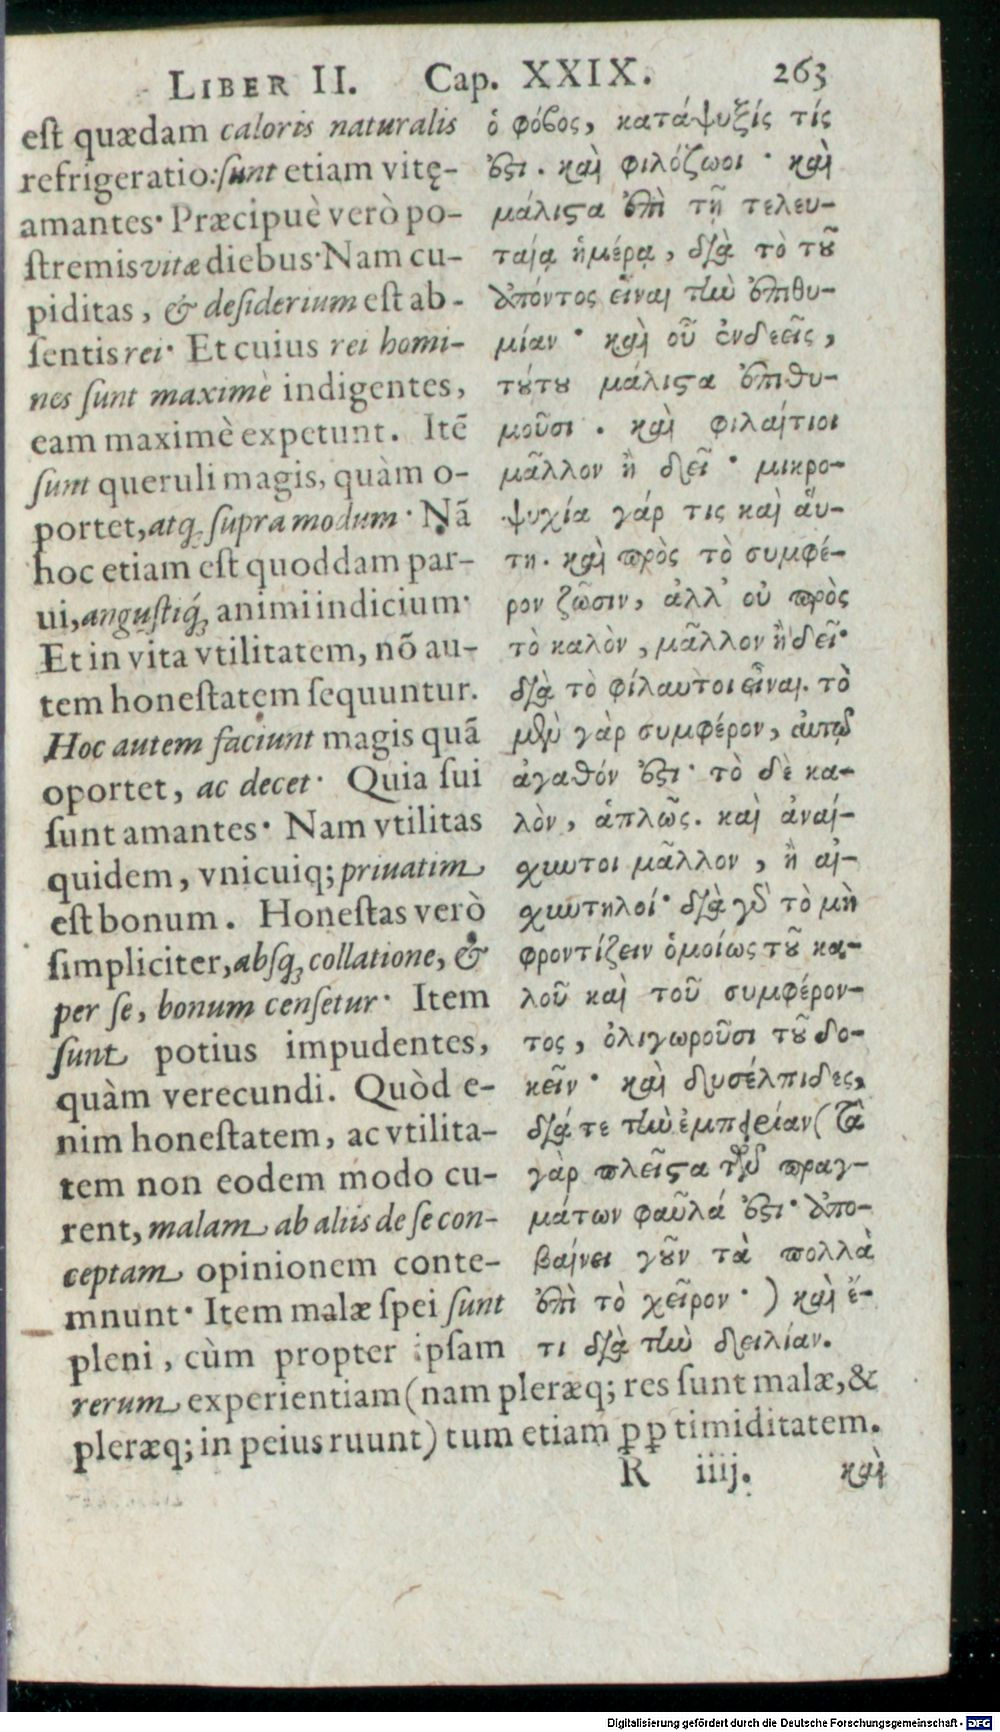 LIBER II. Cap. XXIX. 263
est quædam caloris naturalis
refrigeratio: sunt etiam vitę-
amantes· Præcipuè verò po-
stremis vitæ diebus· Nam cu-
piditas, & desiderium est ab-
sentis rei· Et cuius rei homi-
nes sunt maximè indigentes,
eam maximè expetunt. Itē
sunt queruli magis, quàm o-
portet, atq; supra modum· Nā
hoc etiam est quoddam par-
ui, angustiq́; animi indicium·
Et in vita vtilitatem, nō au-
tem honestatem sequuntur.
Hoc autem faciunt magis quā
oportet, ac decet· Quia sui
sunt amantes· Nam vtilitas
quidem, vnicuiq; priuatim
est bonum. Honestas verò
simpliciter, absq; collatione, &
per se, bonum censetur· Item
sunt potius impudentes,
quàm verecundi. Quòd e-
nim honestatem, ac vtilita-
tem non eodem modo cu-
rent, malam ab aliis de se con-
ceptam opinionem conte-
mnunt· Item malæ spei sunt
pleni, cùm propter ipsam
ὁ φόβος, κατάψυξίς τίς
ἐστι. καὶ φιλόζωοι· καὶ
μάλιστα ἐπὶ τῇ τελευ-
ταίᾳ ἡμέρᾳ, διὰ τὸ τοῦ
ἀπόντος εἶναι τὴν ἐπιθυ-
μίαν· καὶ οὗ ἐνδεεῖς,
τούτου μάλιστα ἐπιθυ-
μοῦσι. καὶ φιλαίτιοι
μᾶλλον ἢ δεῖ· μικρο-
ψυχία γάρ τις καὶ αὕ-
τη. καὶ πρὸς τὸ συμφέ-
ρον ζῶσιν, ἀλλ' οὐ πρὸς
τὸ καλὸν, μᾶλλον ἢ δεῖ·
διὰ τὸ φίλαυτοι εἶναι. τὸ
μὲν γὰρ συμφέρον, αὐτῷ
ἀγαθόν ἐστι· τὸ δὲ κα-
λὸν, ἁπλῶς. καὶ ἀναί-
σχυντοι μᾶλλον, ἢ αἰ-
σχυντηλοί· διὰ γὰρ τὸ μὴ
φροντίζειν ὁμοίως τοῦ κα-
λοῦ καὶ τοῦ συμφέρον-
τος, ὀλιγωροῦσι τοῦ δο-
κεῖν· καὶ δυσέλπιδες,
διά τε τὴν ἐμπειρίαν (τὰ
γὰρ πλεῖστα τῶν πραγ-
μάτων φαῦλά ἐστι· ἀπο-
βαίνει γοῦν τὰ πολλὰ
ἐπὶ τὸ χεῖρον·) καὶ ἔ-
τι διὰ τὴν δειλίαν.
rerum experientiam (nam pleræq; res sunt malæ, &
pleræq; in peius ruunt) tum etiam ꝑꝑ timiditatem.
R iiij. καὶ
Digitalisierung gefördert durch die Deutsche Forschungsgemeinschaft - DFG